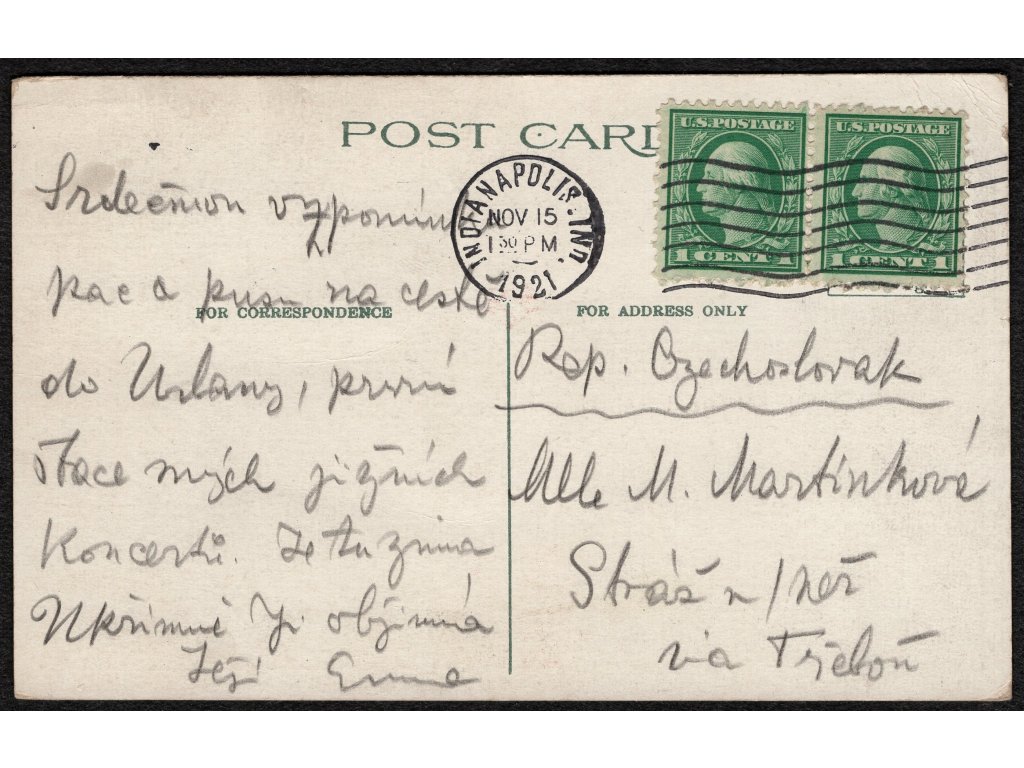 POST CARD
U.S. POSTAGE U.S. POSTAGE
1 CENT 1 1 CENT 1
INDIANAPOLIS, IND.
NOV 15
1 30 PM
1921
Srdečnou vzpomín
pac a pusu na cestě
FOR CORRESPONDENCE
do Urbany, první
štace mých jižních
Koncertů. Je tu zima
Upřímně Ji objímá
Její Ema
FOR ADDRESS ONLY
Rep. Czechoslovak
Mlle M. Martínková
Stráž n/než
via Třeboň